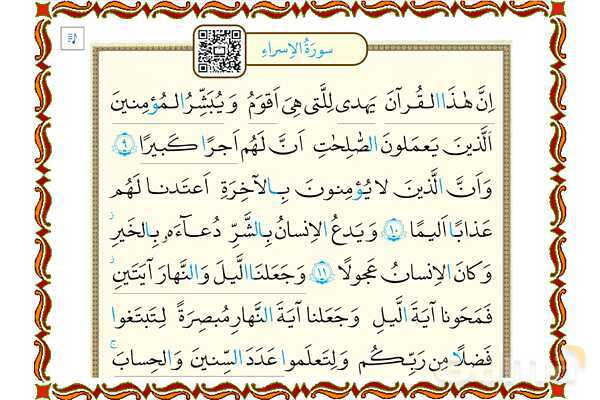 سورَةُ الاِسراءِ
اِنَّ هٰذَا القُرآنَ يَهدى لِلَّتى هِىَ اَقوَمُ وَ يُبَشِّرُ المُؤمِنينَ
الَّذينَ يَعمَلونَ الصّٰلِحٰتِ اَنَّ لَهُم اَجرًا كَبيرًا ٩
وَ اَنَّ الَّذينَ لا يُؤمِنونَ بِالآخِرَةِ اَعتَدنا لَهُم
عَذابًا اَليمًا ١٠ وَ يَدعُ الاِنسانُ بِالشَّرِّ دُعآءَهٗ بِالخَيرِ
وَ كانَ الاِنسانُ عَجولًا ١١ وَ جَعَلنَا الَّيلَ وَ النَّهارَ آيَتَينِ
فَمَحَونا آيَةَ الَّيلِ وَ جَعَلنا آيَةَ النَّهارِ مُبصِرَةً لِتَبتَغوا
فَضلًا مِن رَبِّكُم وَ لِتَعلَموا عَدَدَ السِّنينَ وَ الحِسابَ